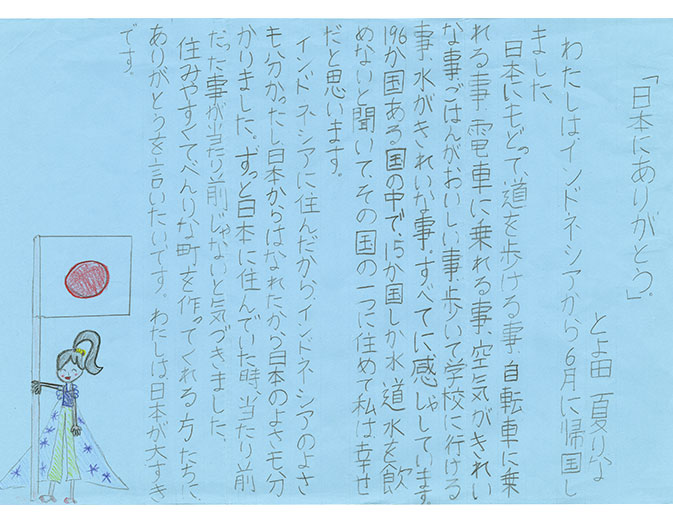 「日本にありがとう。」
とよ田 夏りな
わたしはインドネシアから6月に帰国し
ました。
日本にもどって、道を歩ける事、自転車に乗
れる事、電車に乗れる事、空気がきれい
な事、ごはんがおいしい事、歩いて学校に行ける
事、水がきれいな事。すべてに感しゃしています。
196か国ある国の中で、15か国しか水道水を飲
めないと聞いて、その国の一つに住めて私は幸せ
だと思います。
インドネシアに住んだから、インドネシアのよさ
も分かったし、日本からはなれたから日本のよさも分
かりました。ずっと日本に住んでいた時、当たり前
だった事が当たり前じゃないと気づきました。
住みやすくて、べんりな町を作ってくれる方たちに、
ありがとうを言いたいです。わたしは、日本が大すき
です。